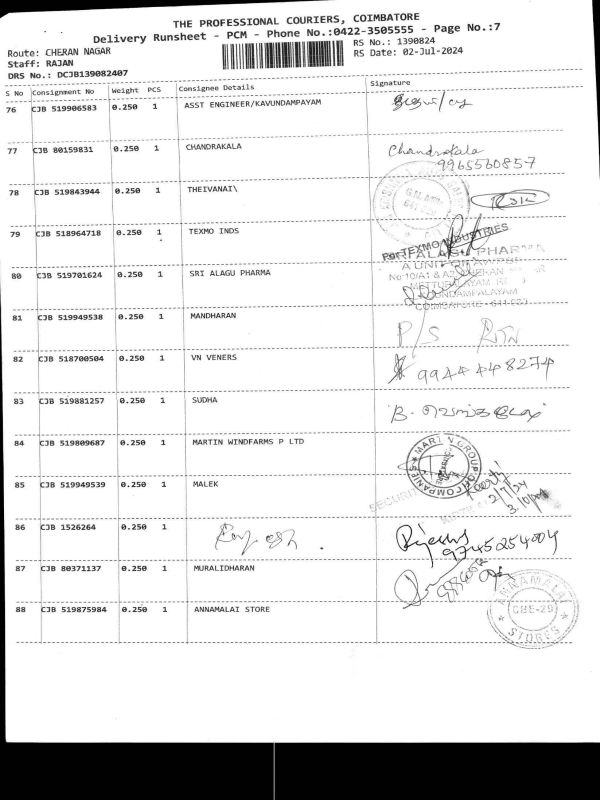 THE PROFESSIONAL COURIERS, COIMBATORE
Delivery Runsheet - PCM - Phone No.:0422-3505555 - Page No.:7
Route: CHERAN NAGAR
RS No.: 1390824
Staff: RAJAN
RS Date: 02-Jul-2024
DRS No.: DCJB139082407
S No Consignment No Weight PCS Consignee Details Signature
76 CJB 519906583 0.250 1 ASST ENGINEER/KAVUNDAMPAYAM
77 CJB 80159831 0.250 1 CHANDRAKALA Chandrakala
9965560857
78 CJB 519843944 0.250 1 THEIVANAI\
79 CJB 518964718 0.250 1 TEXMO INDS
For TEXMO INDUSTRIES
80 CJB 519701624 0.250 1 SRI ALAGU PHARMA
ALAGU PHARMA
81 CJB 519949538 0.250 1 MANDHARAN P/S RTN
82 CJB 518700504 0.250 1 VN VENERS 9944448274
83 CJB 519881257 0.250 1 SUDHA
84 CJB 519809687 0.250 1 MARTIN WINDFARMS P LTD
MARTIN GROUP OF COMPANIES
85 CJB 519949539 0.250 1 MALEK
SECURITY
2/7/24
86 CJB 1526264 0.250 1
9745254004
87 CJB 80371137 0.250 1 MURALIDHARAN
88 CJB 519875984 0.250 1 ANNAMALAI STORE
ANNAMALAI
CBE-29
STORES